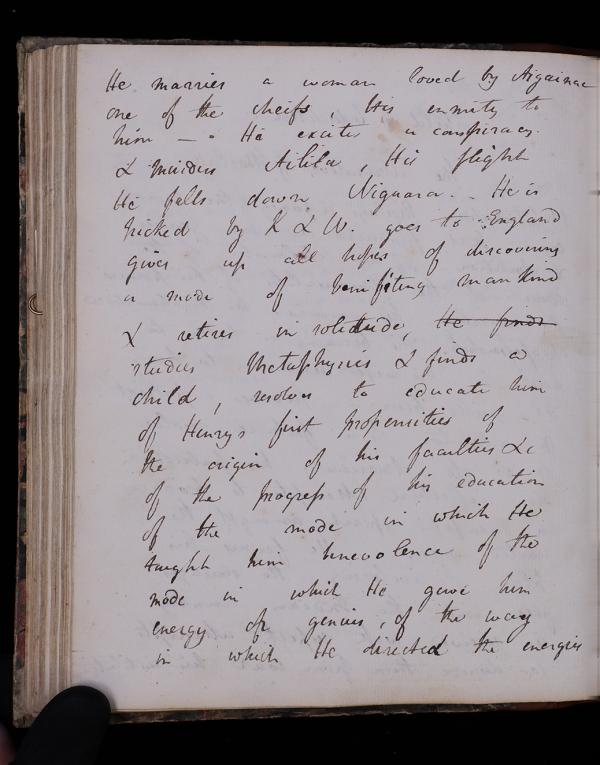 He marries a woman loved by
one of the cheifs, His enmity to
him — . He excites a conspiracy.
& murders , His flight
He falls down Niguara. . He is
by K & W. goes to England
gives up all hopes of discovering
a mode of benifiting mankind
& retires in solitude, He finds
studies Metaphysics & finds a
child, resolves to educate him
of Henry's first propensities of
the origin of his faculties &c
of the progress of his education
of the mode in which He
taught him benevolence of the
mode in which He gave him
energy of genius, of the way
in which He directed the energies